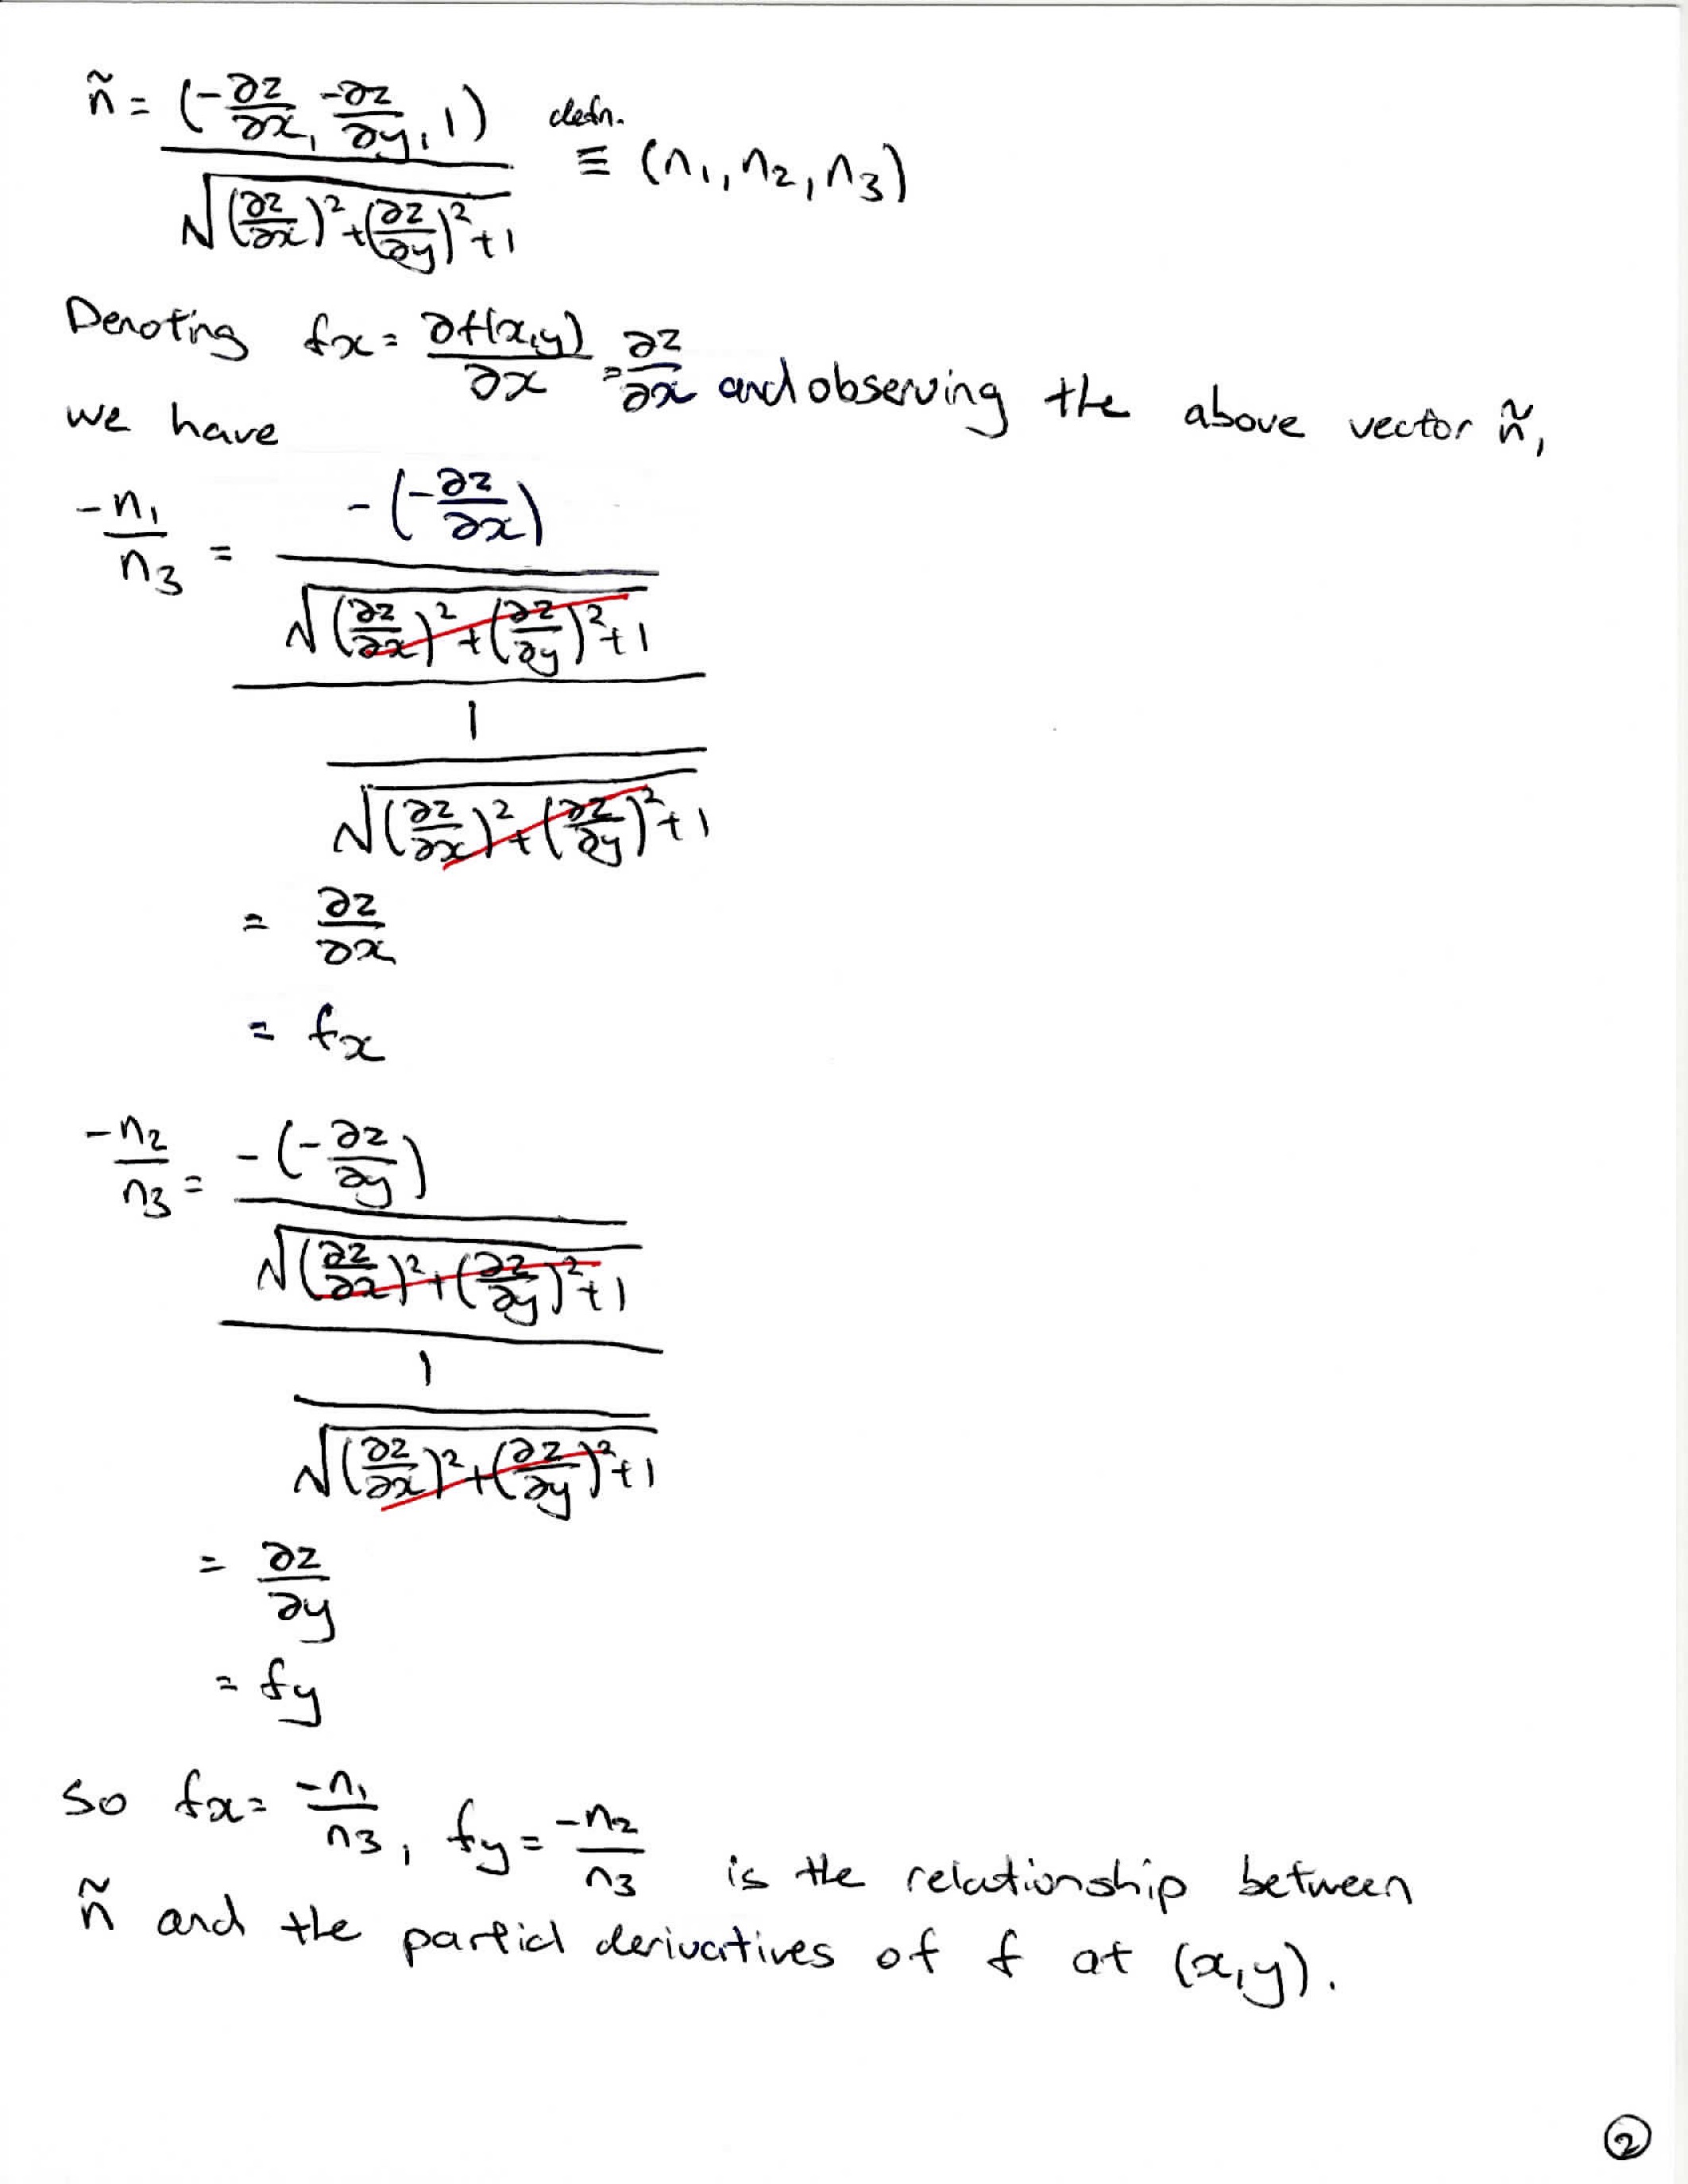 ñ = (-∂z/∂x, -∂z/∂y, 1) / √((∂z/∂x)² + (∂z/∂y)² + 1) defn. ≡ (n₁, n₂, n₃)
Denoting fx = ∂f(x,y)/∂x = ∂z/∂x and observing the above vector ñ,
we have
-n₁/n₃ = [-(-∂z/∂x) / √((∂z/∂x)² + (∂z/∂y)² + 1)] / [1 / √((∂z/∂x)² + (∂z/∂y)² + 1)]
= ∂z/∂x
= fx
-n₂/n₃ = [-(-∂z/∂y) / √((∂z/∂x)² + (∂z/∂y)² + 1)] / [1 / √((∂z/∂x)² + (∂z/∂y)² + 1)]
= ∂z/∂y
= fy
so fx = -n₁/n₃, fy = -n₂/n₃ is the relationship between
ñ and the partial derivatives of f at (x,y).
2